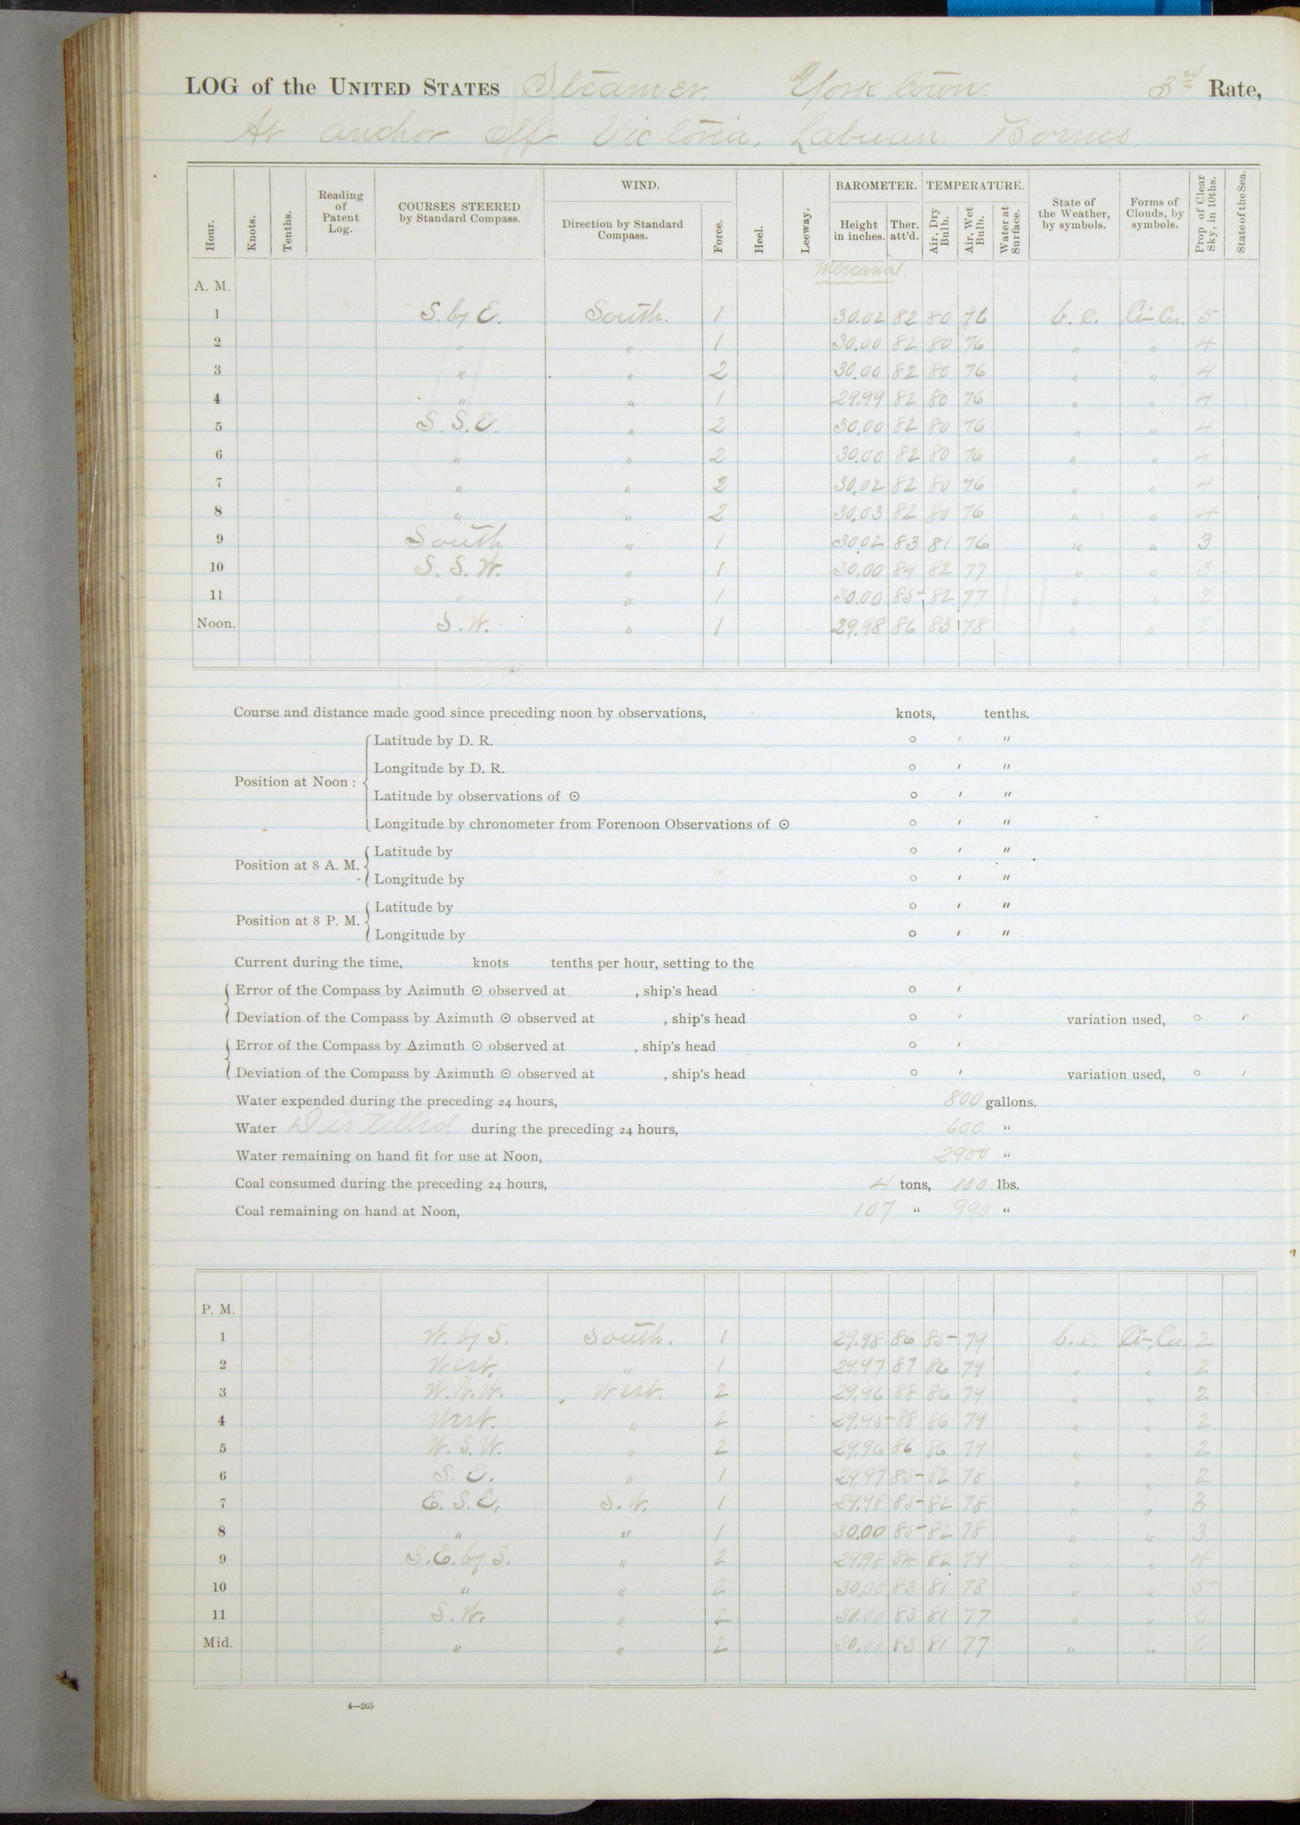 LOG of the UNITED STATES Steamer. Yorktown. 3rd Rate,
At anchor off Victoria, Labuan. Borneo.
Hour. Knots. Tenths. Reading of Patent Log. COURSES STEERED by Standard Compass. WIND. Direction by Standard Compass. Force. Heel. Leeway. BAROMETER. Height in inches. Ther. att'd. TEMPERATURE. Air, Dry Bulb. Air, Wet Bulb. Water at Surface. State of the Weather, by symbols. Forms of Clouds, by symbols. Prop of Clear Sky, in 10ths. State of the Sea.
Mercurial
A. M.
1 S. by E. South. 1 30.02 82 80 76 b.c. Ci-Cu. 5
2 " " 1 30.00 82 80 76 " " 4
3 " " 2 30.00 82 80 76 " " 4
4 " " 1 29.99 82 80 76 " " 4
5 S. S. E. " 2 30.00 82 80 76 " " 4
6 " " 2 30.00 82 80 76 " " 4
7 " " 2 30.02 82 80 76 " " 4
8 " " 2 30.03 82 80 76 " " 4
9 South " 1 30.02 83 81 76 " " 3
10 S. S. W. " 1 30.00 84 82 77 " " 3
11 " " 1 30.00 85 82 77 " " 2
Noon. S. W. " 1 29.98 86 83 78 " " 2
Course and distance made good since preceding noon by observations, knots, tenths.
Position at Noon :
Latitude by D. R. ° ′ ″
Longitude by D. R. ° ′ ″
Latitude by observations of ☉ ° ′ ″
Longitude by chronometer from Forenoon Observations of ☉ ° ′ ″
Position at 8 A. M.
Latitude by ° ′ ″
Longitude by ° ′ ″
Position at 8 P. M.
Latitude by ° ′ ″
Longitude by ° ′ ″
Current during the time, knots tenths per hour, setting to the
Error of the Compass by Azimuth ☉ observed at , ship's head ° ′
Deviation of the Compass by Azimuth ☉ observed at , ship's head ° ′ variation used, ° ′
Error of the Compass by Azimuth ☉ observed at , ship's head ° ′
Deviation of the Compass by Azimuth ☉ observed at , ship's head ° ′ variation used, ° ′
Water expended during the preceding 24 hours, 800 gallons.
Water Distilled during the preceding 24 hours, 600 "
Water remaining on hand fit for use at Noon, 2900 "
Coal consumed during the preceding 24 hours, 4 tons, 100 lbs.
Coal remaining on hand at Noon, 107 " 990 "
P. M.
1 W. by S. South. 1 29.98 86 85 79 b.c. Ci-Cu. 2
2 West. " 1 29.97 87 86 79 " " 2
3 W.N.W. West. 2 29.96 88 86 79 " " 2
4 West. " 2 29.95 88 86 79 " " 2
5 W. S. W. " 2 29.96 86 86 79 " " 2
6 S. E. " 1 29.97 85 82 78 " " 2
7 E. S. E. S. W. 1 29.98 85 82 78 " " 3
8 " " 1 30.00 85 82 78 " " 3
9 S. E. by S. " 2 29.98 84 82 79 " " 4
10 " " 2 30.00 83 81 78 " " 5
11 S. W. " 2 30.00 83 81 77 " " 6
Mid. " " 2 30.00 83 81 77 " " 6
4—265